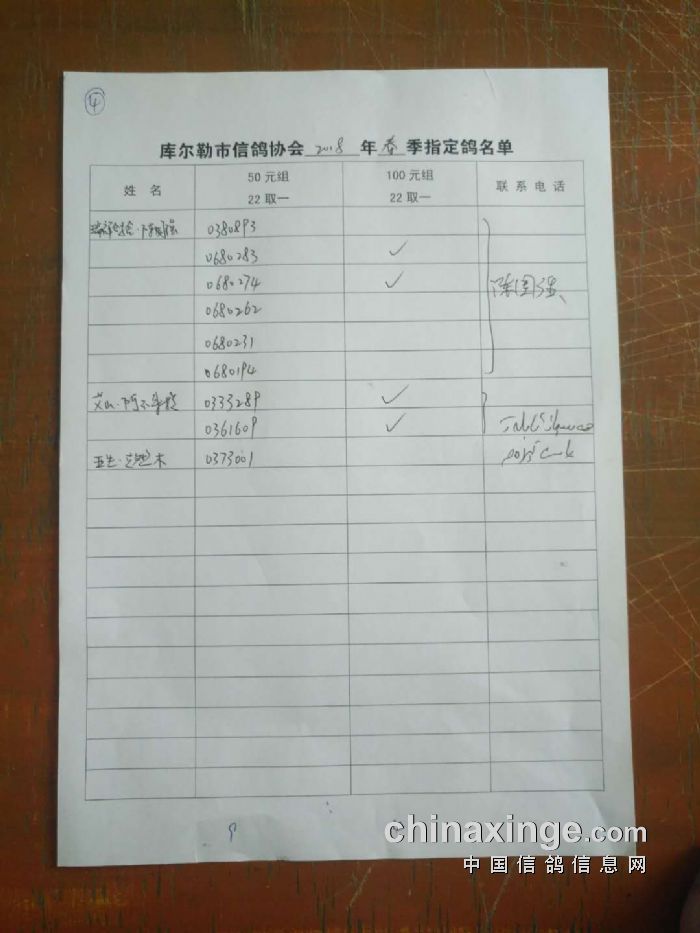 4
库尔勒市信鸽协会 2018 年 春 季指定鸽名单
姓 名 50元组 22取一 100元组 22取一 联系电话
0380893
0680283 ✓
0680274 ✓ 陈国强
0680262
0680231
0680194
0333289 ✓
0361609 ✓
0373001
9
chinaxinge.com
中国信鸽信息网